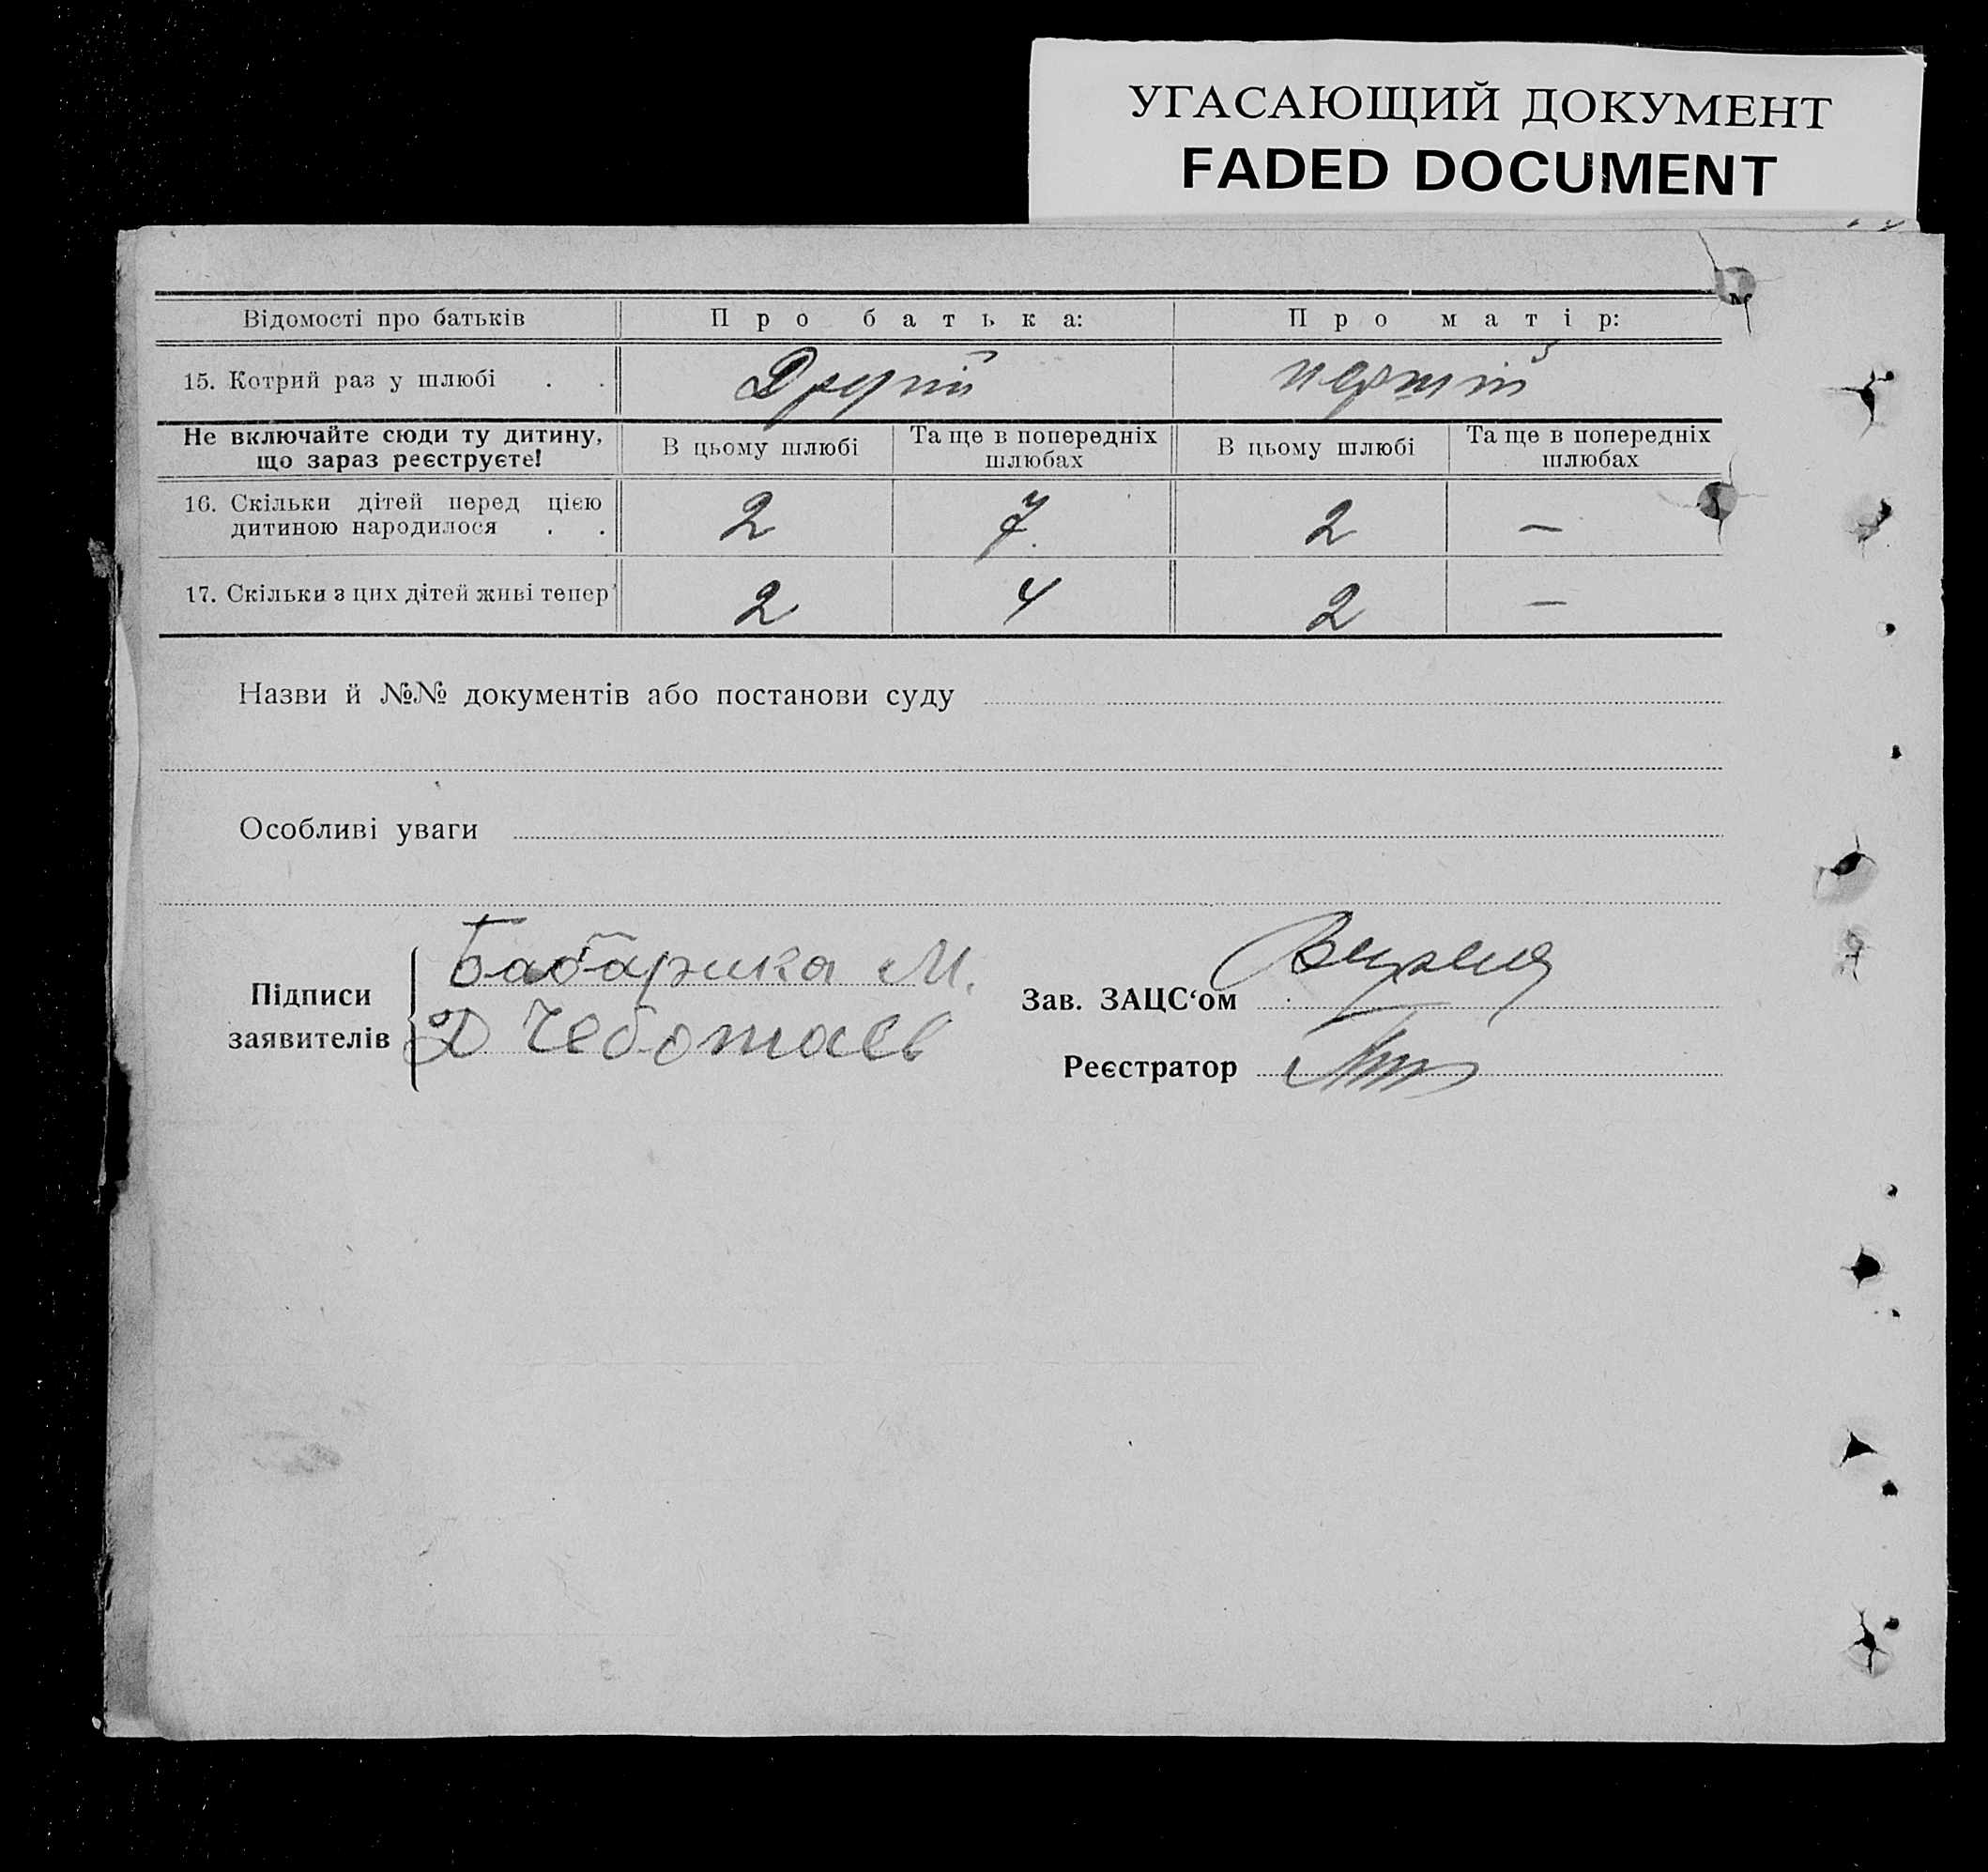 УГАСАЮЩИЙ ДОКУМЕНТ
FADED DOCUMENT
Відомості про батьків Про батька: Про матір:
15. Котрий раз у шлюбі . . Другій першій
Не включайте сюди ту дитину, що зараз реєструєте! В цьому шлюбі Та ще в попередніх шлюбах В цьому шлюбі Та ще в попередніх шлюбах
16. Скільки дітей перед цією дитиною народилося . . 2 7 2 —
17. Скільки з цих дітей живі тепер 2 4 2 —
Назви й №№ документів або постанови суду
Особливі уваги
Підписи заявителів
Бабарика М.
Д Чеботаєв
Зав. ЗАЦС‘ом
Реєстратор